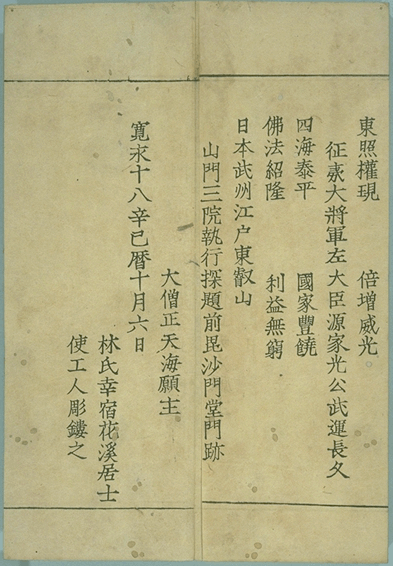 東照權現　倍增威光
征夷大將軍左大臣源家光公武運長久
四海泰平　國家豐饒
佛法紹隆　利益無窮
日本武州江户東叡山
山門三院執行探題前毘沙門堂門跡
大僧正天海願主
寛永十八辛巳暦十月六日
林氏幸宿花溪居士
使工人彫鏤之